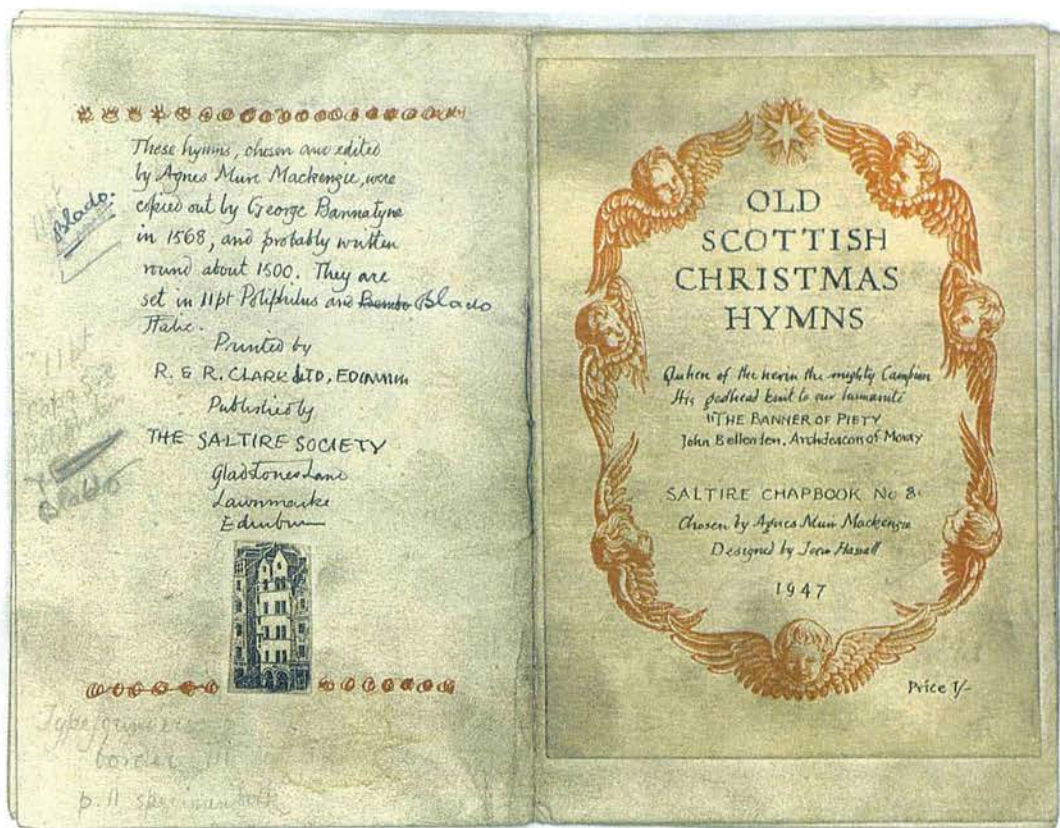 These hymns, chosen and edited
by Agnes Mure Mackenzie, were
copied out by George Bannatyne
in 1568, and probably written
round about 1500. They are
set in 11pt Poliphilus and Bembo Blado
Italic.
Printed by
R. & R. CLARK LTD, EDINBURGH
Published by
THE SALTIRE SOCIETY
Gladstones Land
Lawnmarke
Edinburgh
11pt
Blado.
11pt
Blado
border III
p. 11 specimen book
OLD
SCOTTISH
CHRISTMAS
HYMNS
Quhen of the hevin the mighty Campion
His godhead knit to our humanité
"THE BANNER OF PIETY
John Bellenden, Archdeacon of Moray
SALTIRE CHAPBOOK No 8.
Chosen by Agnes Muir Mackenzie
Designed by Joan Hassall
1947
Price 1/-